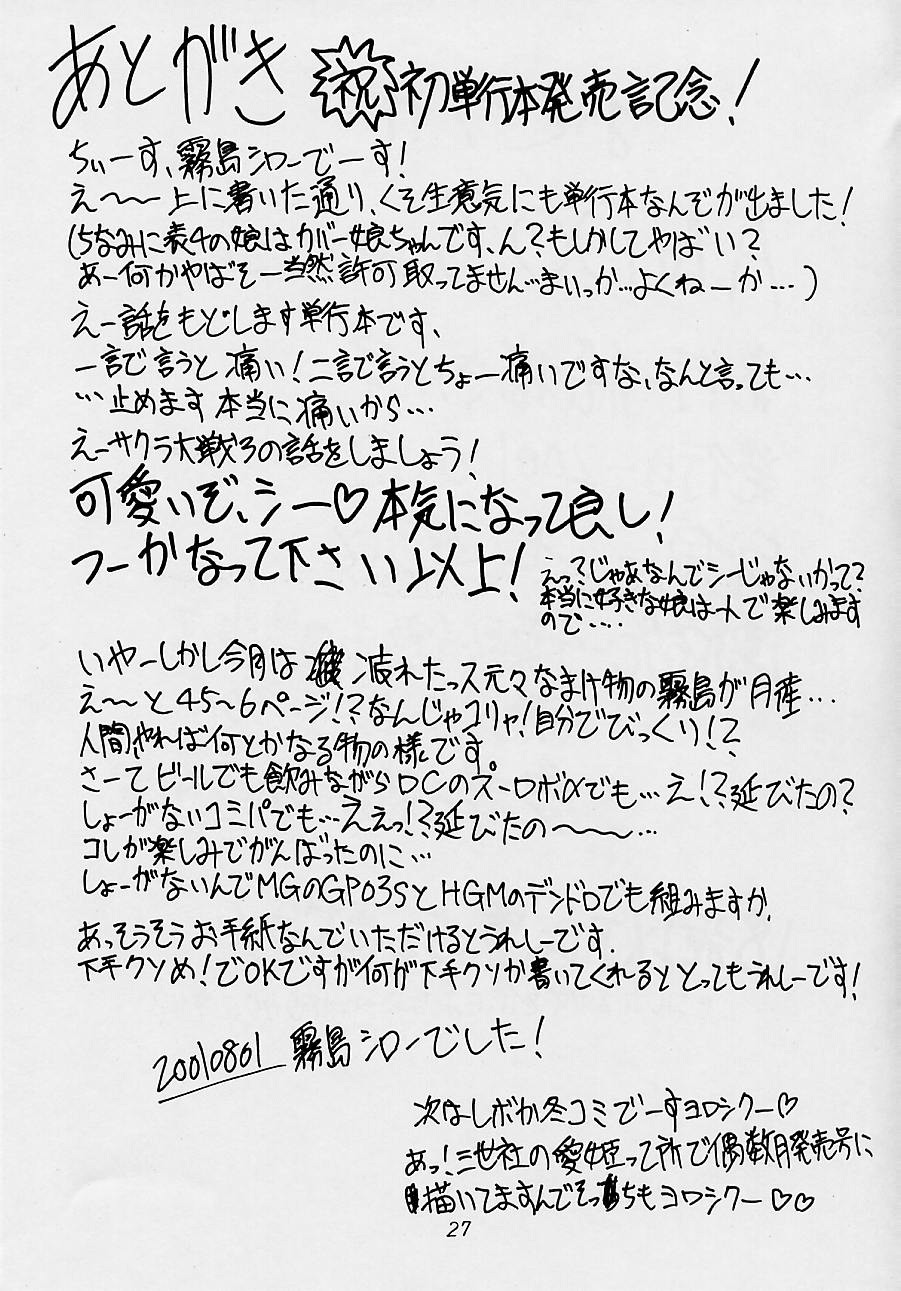 あとがき 祝 初単行本発売記念!
ちぃーす、霧島シローでーす!
え〜〜上に書いた通り、くそ生意気にも単行本なんぞが出ました!
(ちなみに表4の娘はカバー娘ちゃんです、ん?もしかしてやばい?
あー何かやばそー当然許可取ってません…まいっか…よくねーか…)
えー話をもどします単行本です、
一言で言うと痛い!二言で言うとちょー痛いですな、なんと言っても…
…止めます本当に痛いから…
えーサクラ大戦3の話をしましょう!
可愛いぞ、シー♡本気になって良し!
つーかなって下さい以上!
えっ?じゃあなんでシーじゃないかって?
本当に好きな娘は一人で楽しみます
ので‥‥
いやーしかし今月は 疲れたっス元々なまけ物の霧島が月産…
え〜と45〜6ページ!?なんじゃコリャ!自分でびっくり!?
人間やれば何とかなる物の様です
さーてビールでも飲みながらDCのスーロボαでも…え!?延びたの?
しょーがないコミパでも…ええっ!?延びたの〜〜〜…
コレが楽しみでがんばったのに…
しょーがないんでMGのGP03SとHGMのデンドロでも組みますか、
あっそうそうお手紙なんでいただけるとうれしーです.
下手クソめ!でOKですが何が下手クソか書いてくれるととってもうれしーです!
20010801 霧島シローでした!
次はレボか冬コミでーすヨロシクー♡
あっ!三世社の愛姫って所で偶数月発売号に
描いてますんでそっちもヨロシクー♡♡
27